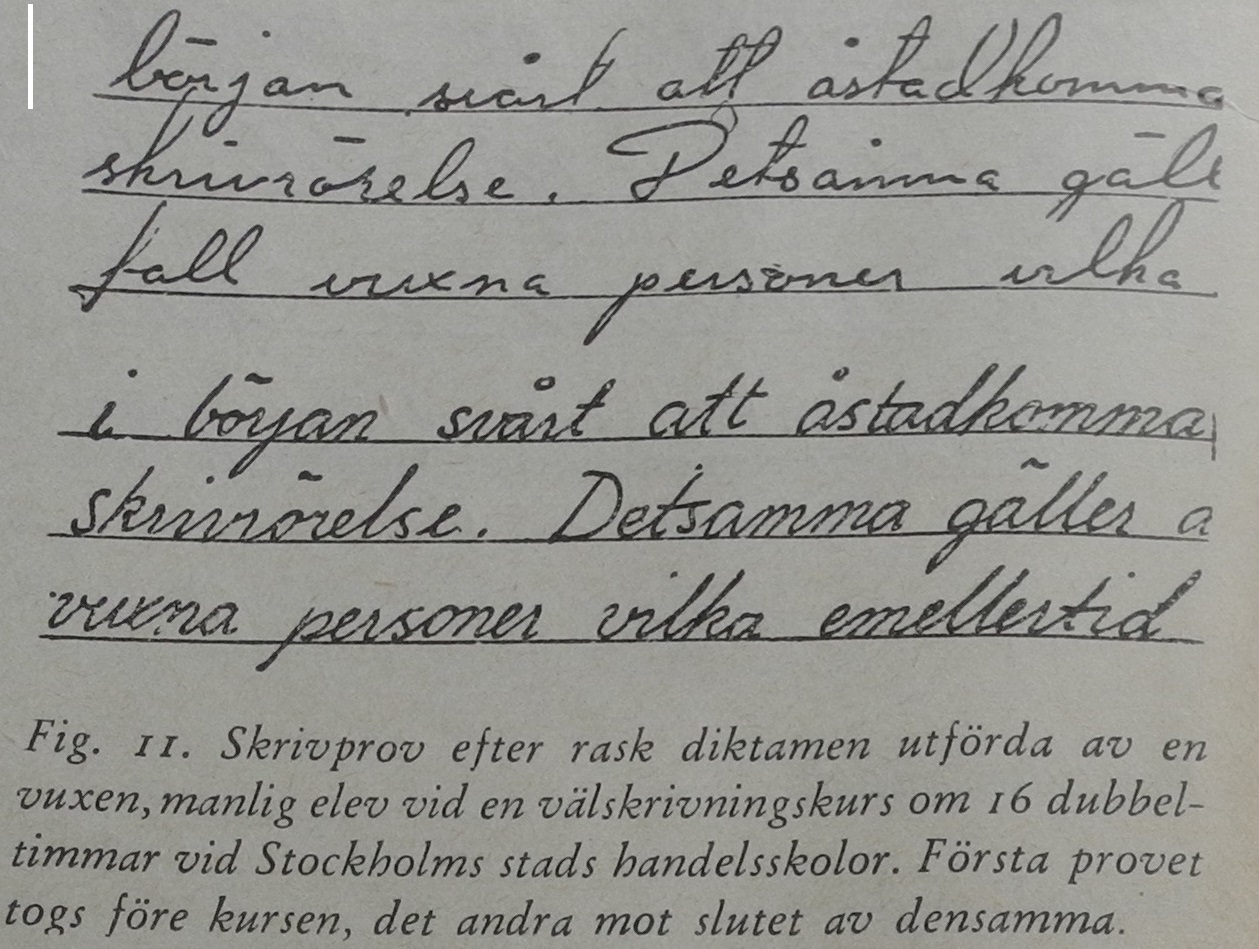 början svårt att åstadkomma
skrivrörelse. Detsamma gäll
fall vuxna personer vilka
i början svårt att åstadkomma,
skrivrörelse. Detsamma gäller a
vuxna personer vilka emellertid
Fig. 11. Skrivprov efter rask diktamen utförda av en
vuxen, manlig elev vid en välskrivningskurs om 16 dubbel-
timmar vid Stockholms stads handelsskolor. Första provet
togs före kursen, det andra mot slutet av densamma.